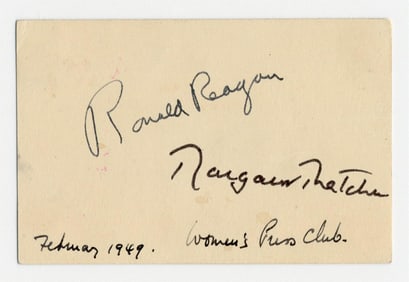 Ronald Reagan
Margaret Thatcher
February 1949. Women's Press Club.